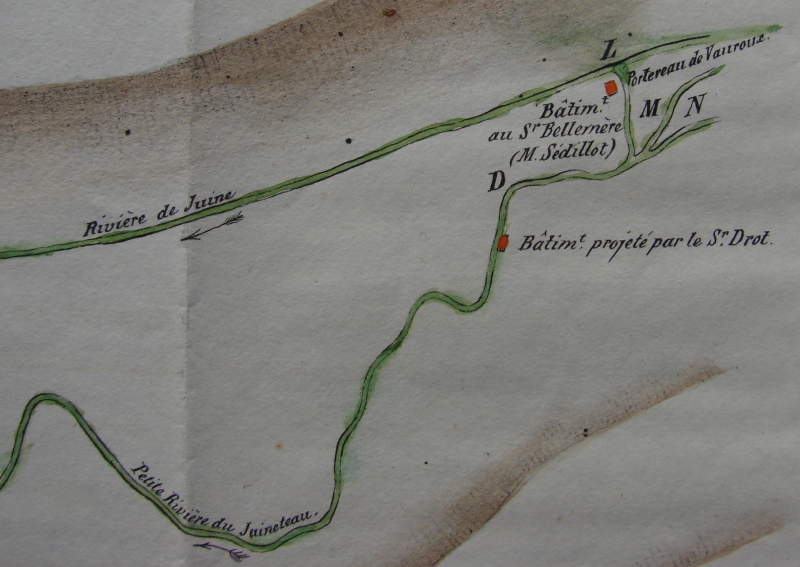 L
Portereau de Vauroux.
Bâtim.t
au Sr Bellemère
(M. Sédillot)
M
N
D
Rivière de Juine
Bâtim.t projeté par le Sr. Drot.
Petite Rivière du Juineteau.